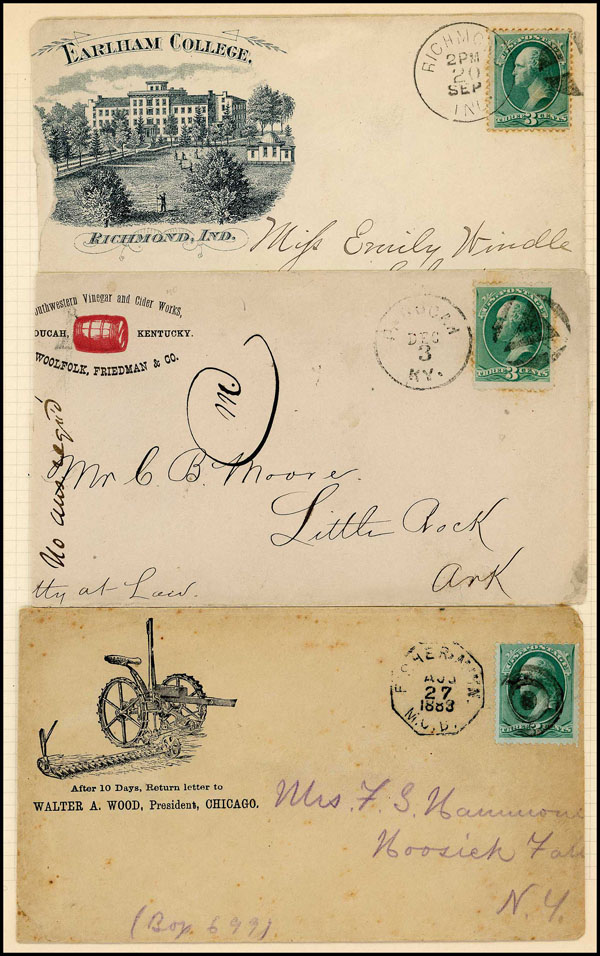 EARLHAM COLLEGE.
RICHMOND, IND.
RICHMO
2 PM
20
SEP
IN
U.S. POSTAGE
3
THREE CENTS
Miss Emily Windle
outhwestern Vinegar and Cider Works,
DUCAH, KENTUCKY.
WOOLFOLK, FRIEDMAN & CO.
DUCAH
DEC
3
KY.
3
THREE CENTS
m
No ans requ'd
Mr C. B. Moore.
Little Rock
Ark
tty at Law.
After 10 Days, Return letter to
WALTER A. WOOD, President, CHICAGO.
AUG
27
1883
M.O.B.
U.S. POSTAGE
Mrs. F. S. Hammon
Hoosick Fal
N. Y.
(Box 699)